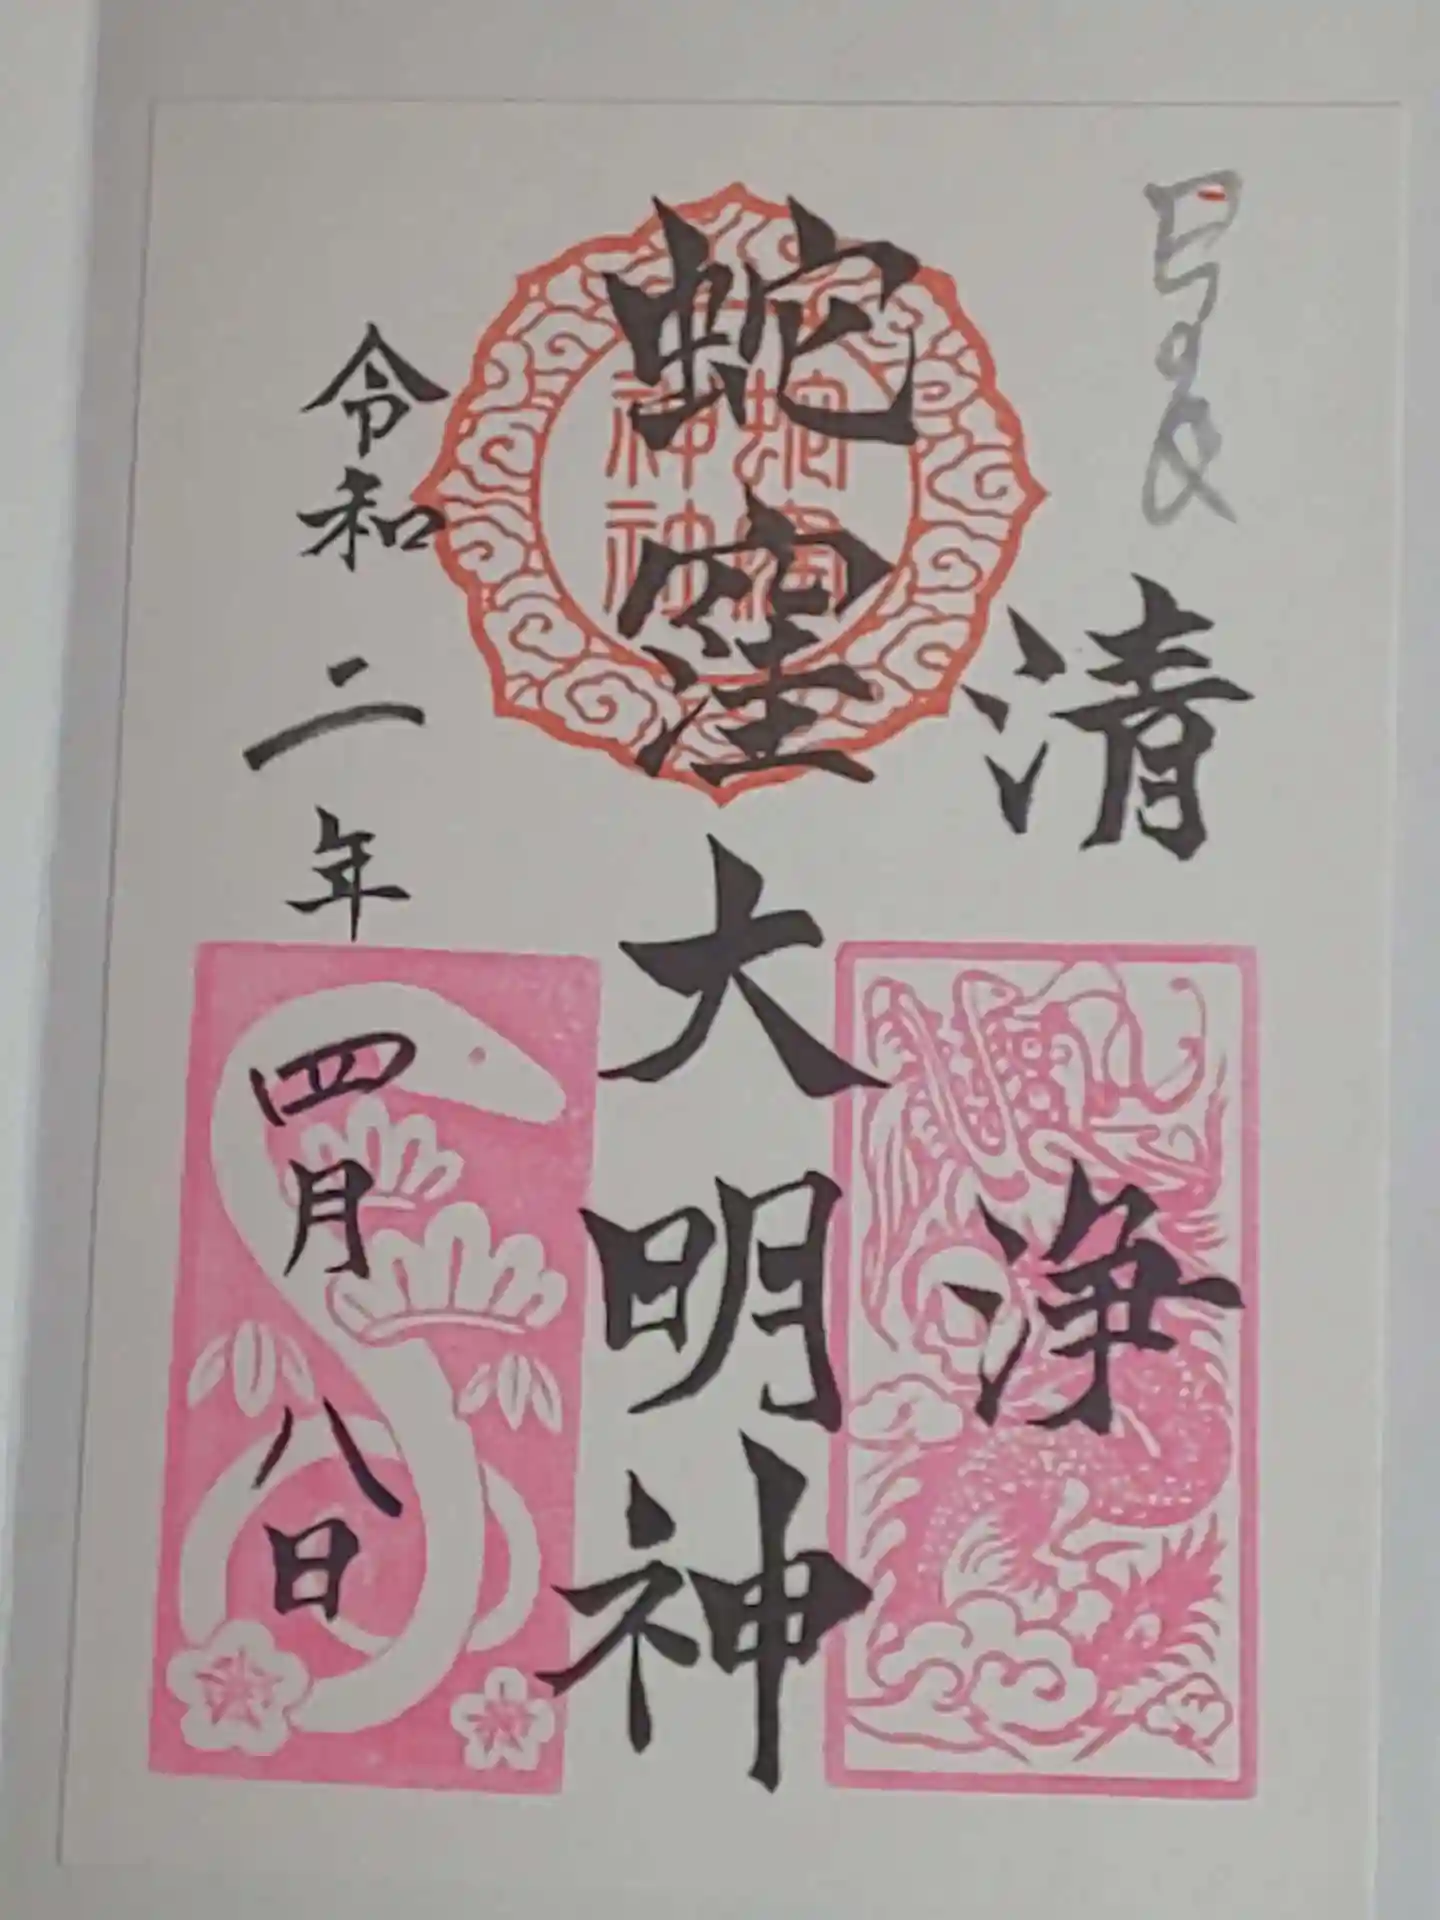 巳の日
清浄
蛇窪大明神
蛇窪
神社
令和二年四月八日